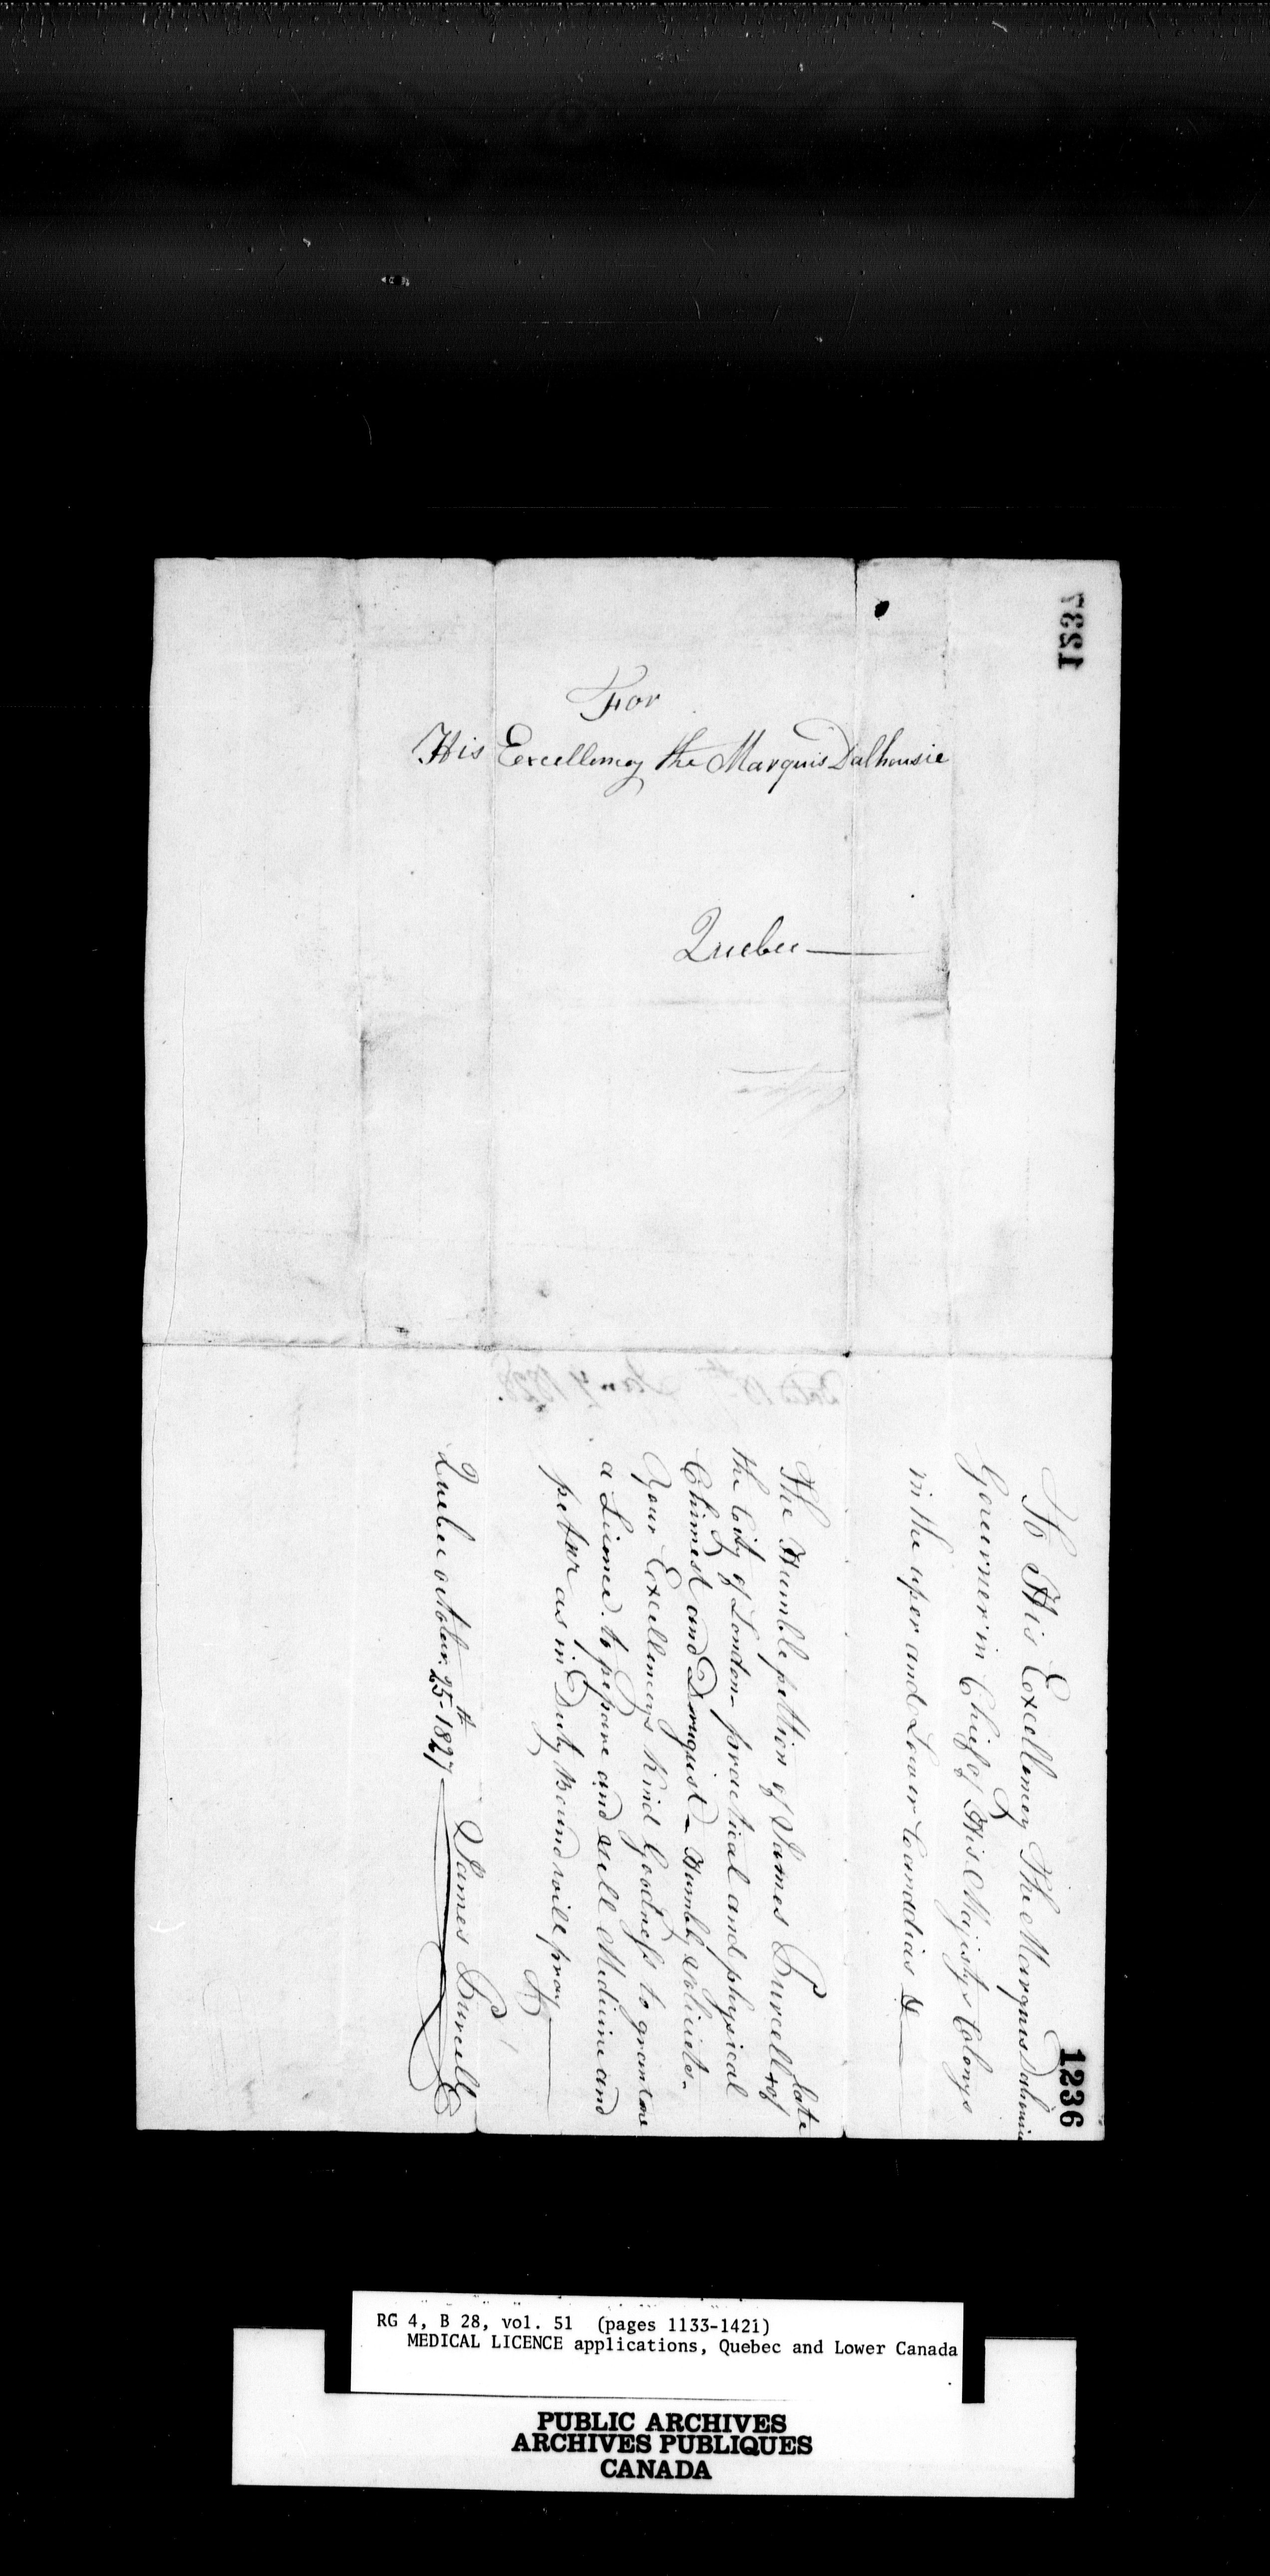 1237
For
His Excellency the Marquis Dalhousie
Quebec
1236
To His Excellency The Marquis Dalhousie
Gouerner in Chief of His Majistys Colonys
in the uper and Lower Canddias &
The Humble pettion of James Purcell late of
the City of London practical and physical
Chimest and Drugist - Humbly solicits -
Your Excellencys Kind Goodness to grant me
a Licence to pepare and sell Medicine and
petnr as in Duty Bound will pray
&
James Purcell
Quebec october 25th - 1827
RG 4, B 28, vol. 51 (pages 1133-1421)
MEDICAL LICENCE applications, Quebec and Lower Canada
PUBLIC ARCHIVES
ARCHIVES PUBLIQUES
CANADA